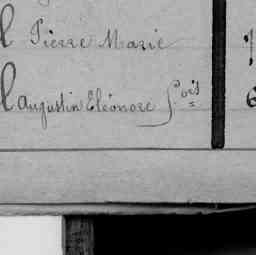 l Pierre Marie
l Augustin Eléonore fois